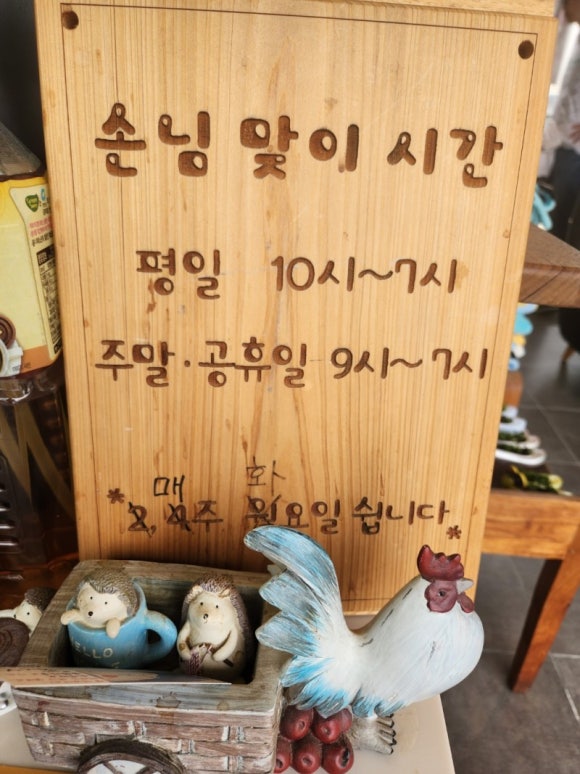 손님 맞이 시간
평일 10시~7시
주말·공휴일 9시~7시
매 화
*2,4주 월요일 쉽니다*
ELLO